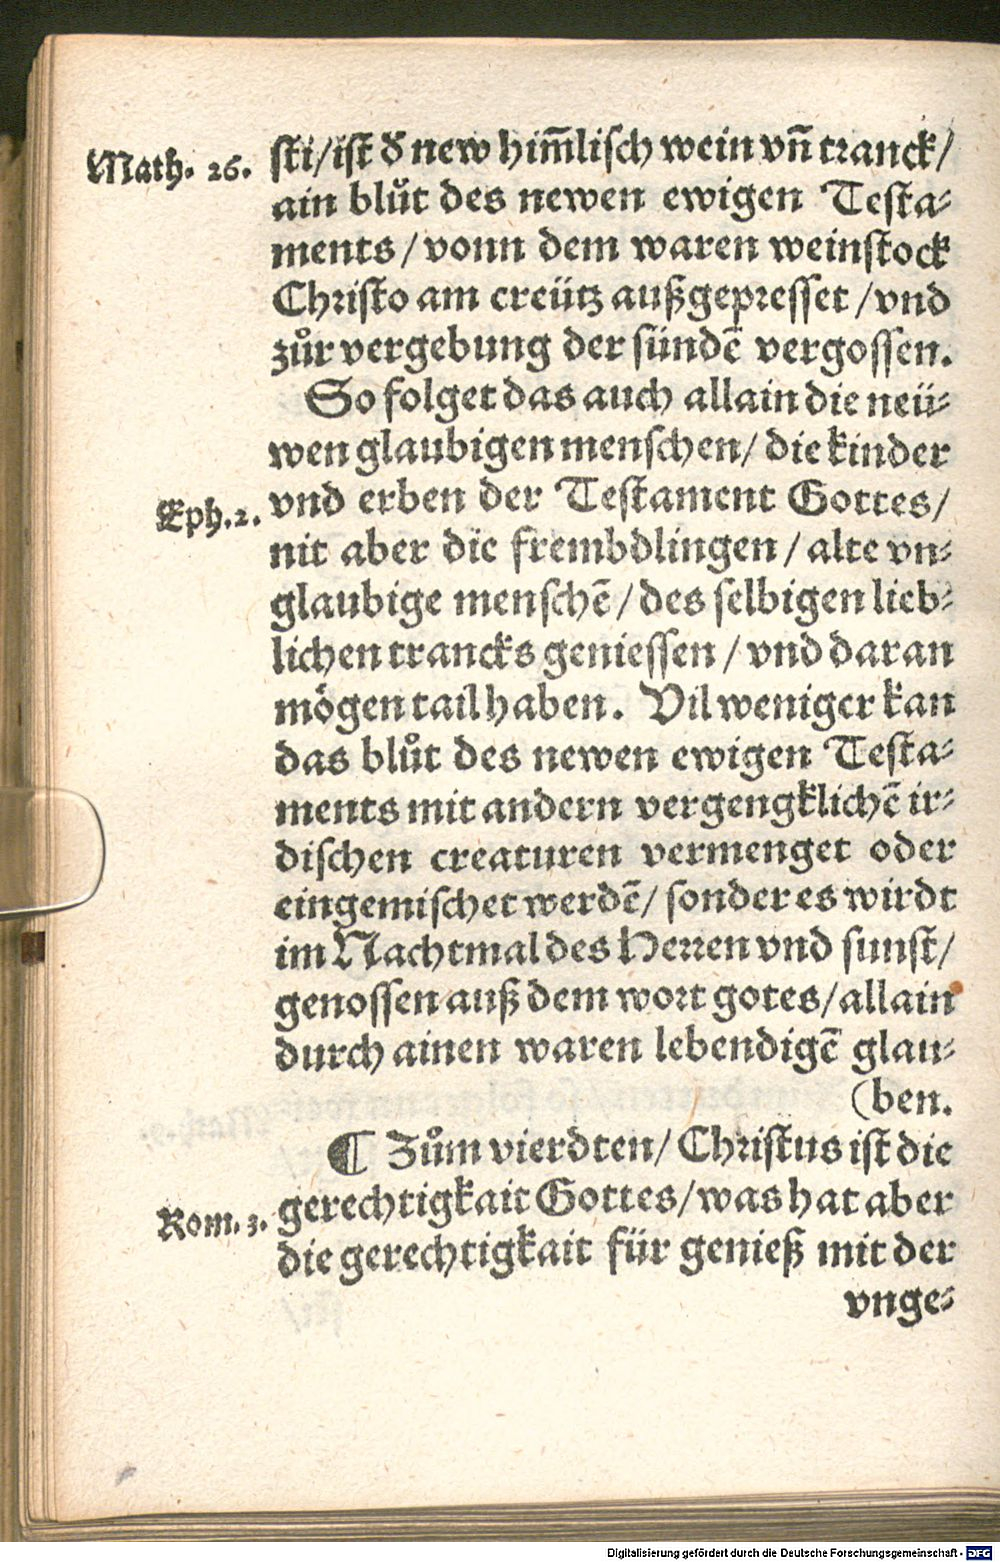 Math. 26. sti/ist d̕ new him̃lisch wein vñ tranck/
ain blůt des newen ewigen Testa⸗
ments/vonn dem waren weinstock
Christo am creütz außgepresset/vnd
zůr vergebung der sündẽ vergossen.
So folget das auch allain die neü⸗
wen glaubigen menschen/die kinder
Eph.2. vnd erben der Testament Gottes/
nit aber die frembdlingen/alte vn⸗
glaubige menschẽ/des selbigen lieb⸗
lichen trancks geniessen/vnd daran
mögen tail haben. Vil weniger kan
das blůt des newen ewigen Testa⸗
ments mit andern vergengklichẽ ir⸗
dischen creaturen vermenget oder
eingemischet werdẽ/sonder es wirdt
im Nachtmal des Herren vnd sunst/
genossen auß dem wort gotes/allain
durch ainen waren lebendigẽ glau⸗
(ben.
¶ Zům vierdten/Christus ist die
Rom. 3. gerechtigkait Gottes/was hat aber
die gerechtigkait für genieß mit der
vnge⸗
Digitalisierung gefördert durch die Deutsche Forschungsgemeinschaft - DFG